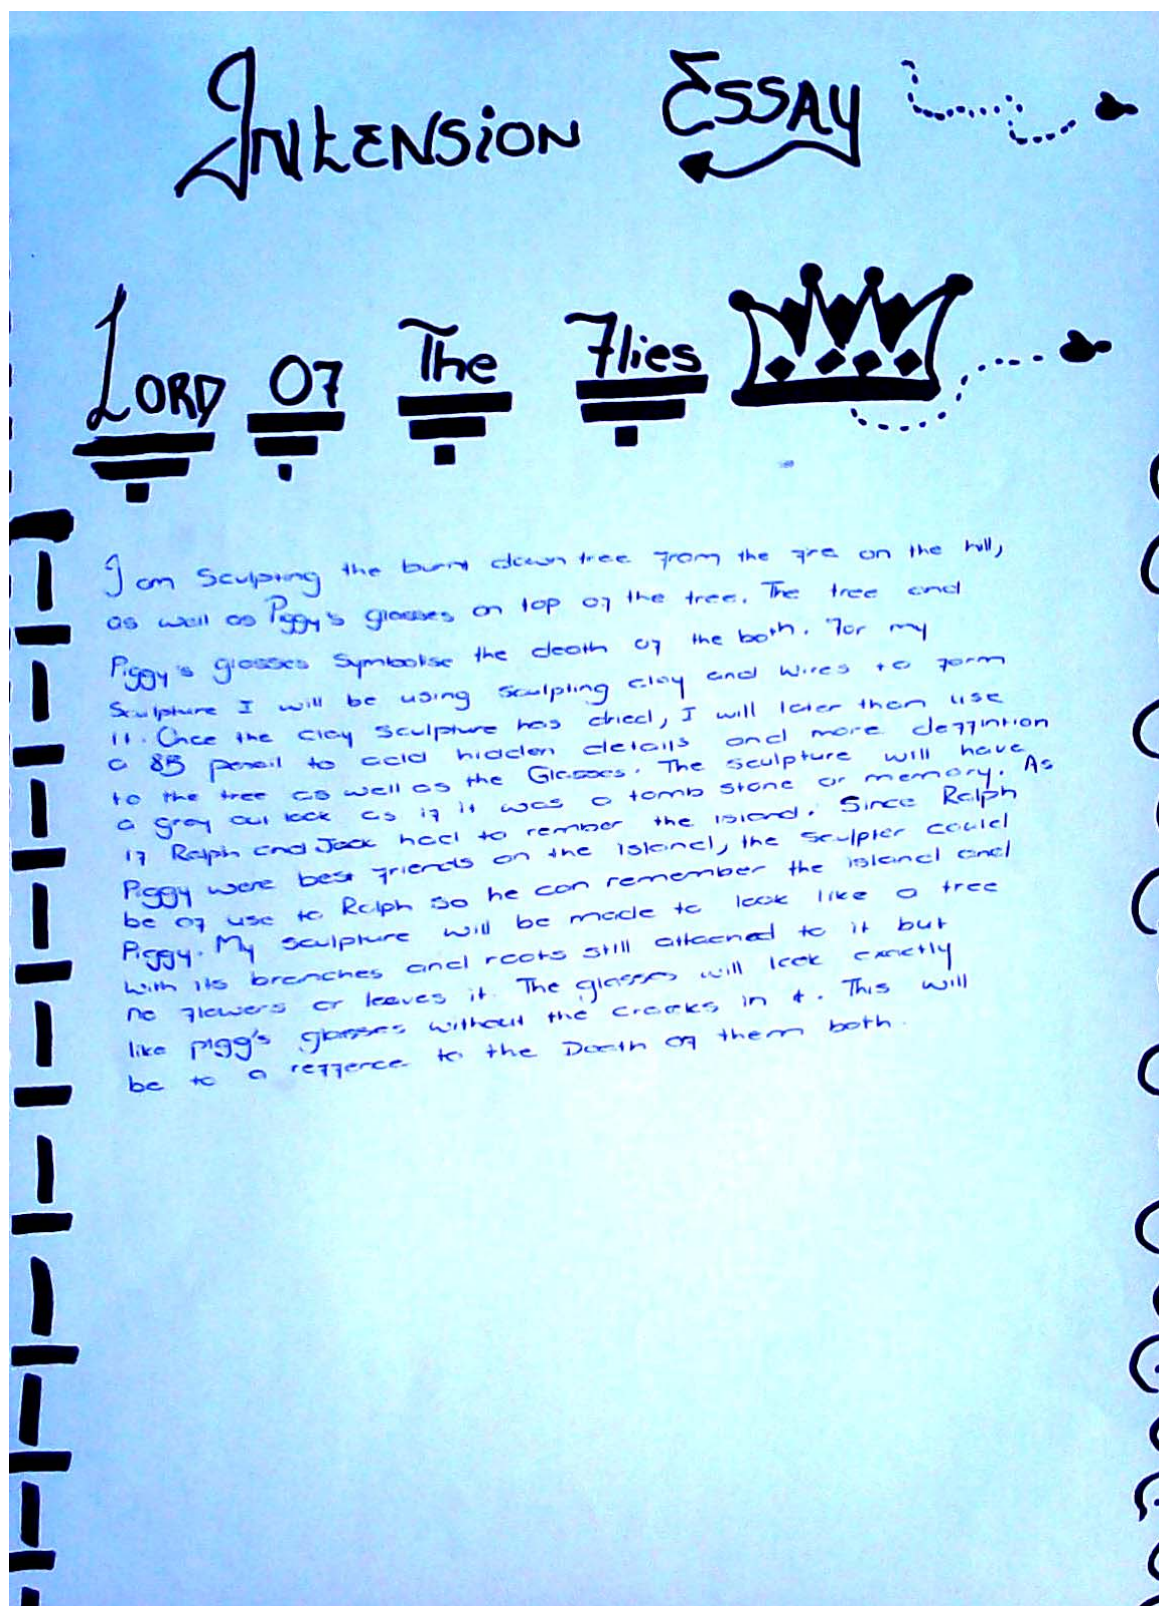 Intension Essay
Lord Of The Flies
I am Sculpting the burnt down tree from the fire on the hill,
as well as Piggy's glasses on top of the tree. The tree and
Piggy's glasses Symbolise the death of the both. For my
Sculpture I will be using Sculpting clay and wires to form
it. Once the clay Sculpture has dried, I will later then use
a 8B pencil to add hidden details and more deffintion
to the tree as well as the Glasses. The Sculpture will have
a grey out look as if it was a tomb stone or memory. As
if Ralph and Jack had to rember the island. Since Ralph
Piggy were best friends on the island, the sculpter could
be of use to Ralph so he can remember the island and
Piggy. My Sculpture will be made to look like a tree
with its branches and roots still attached to it but
no flowers or leaves it. The glasses will look exactly
like pigg's glasses without the cracks in it. This will
be to a refference to the Death of them both.